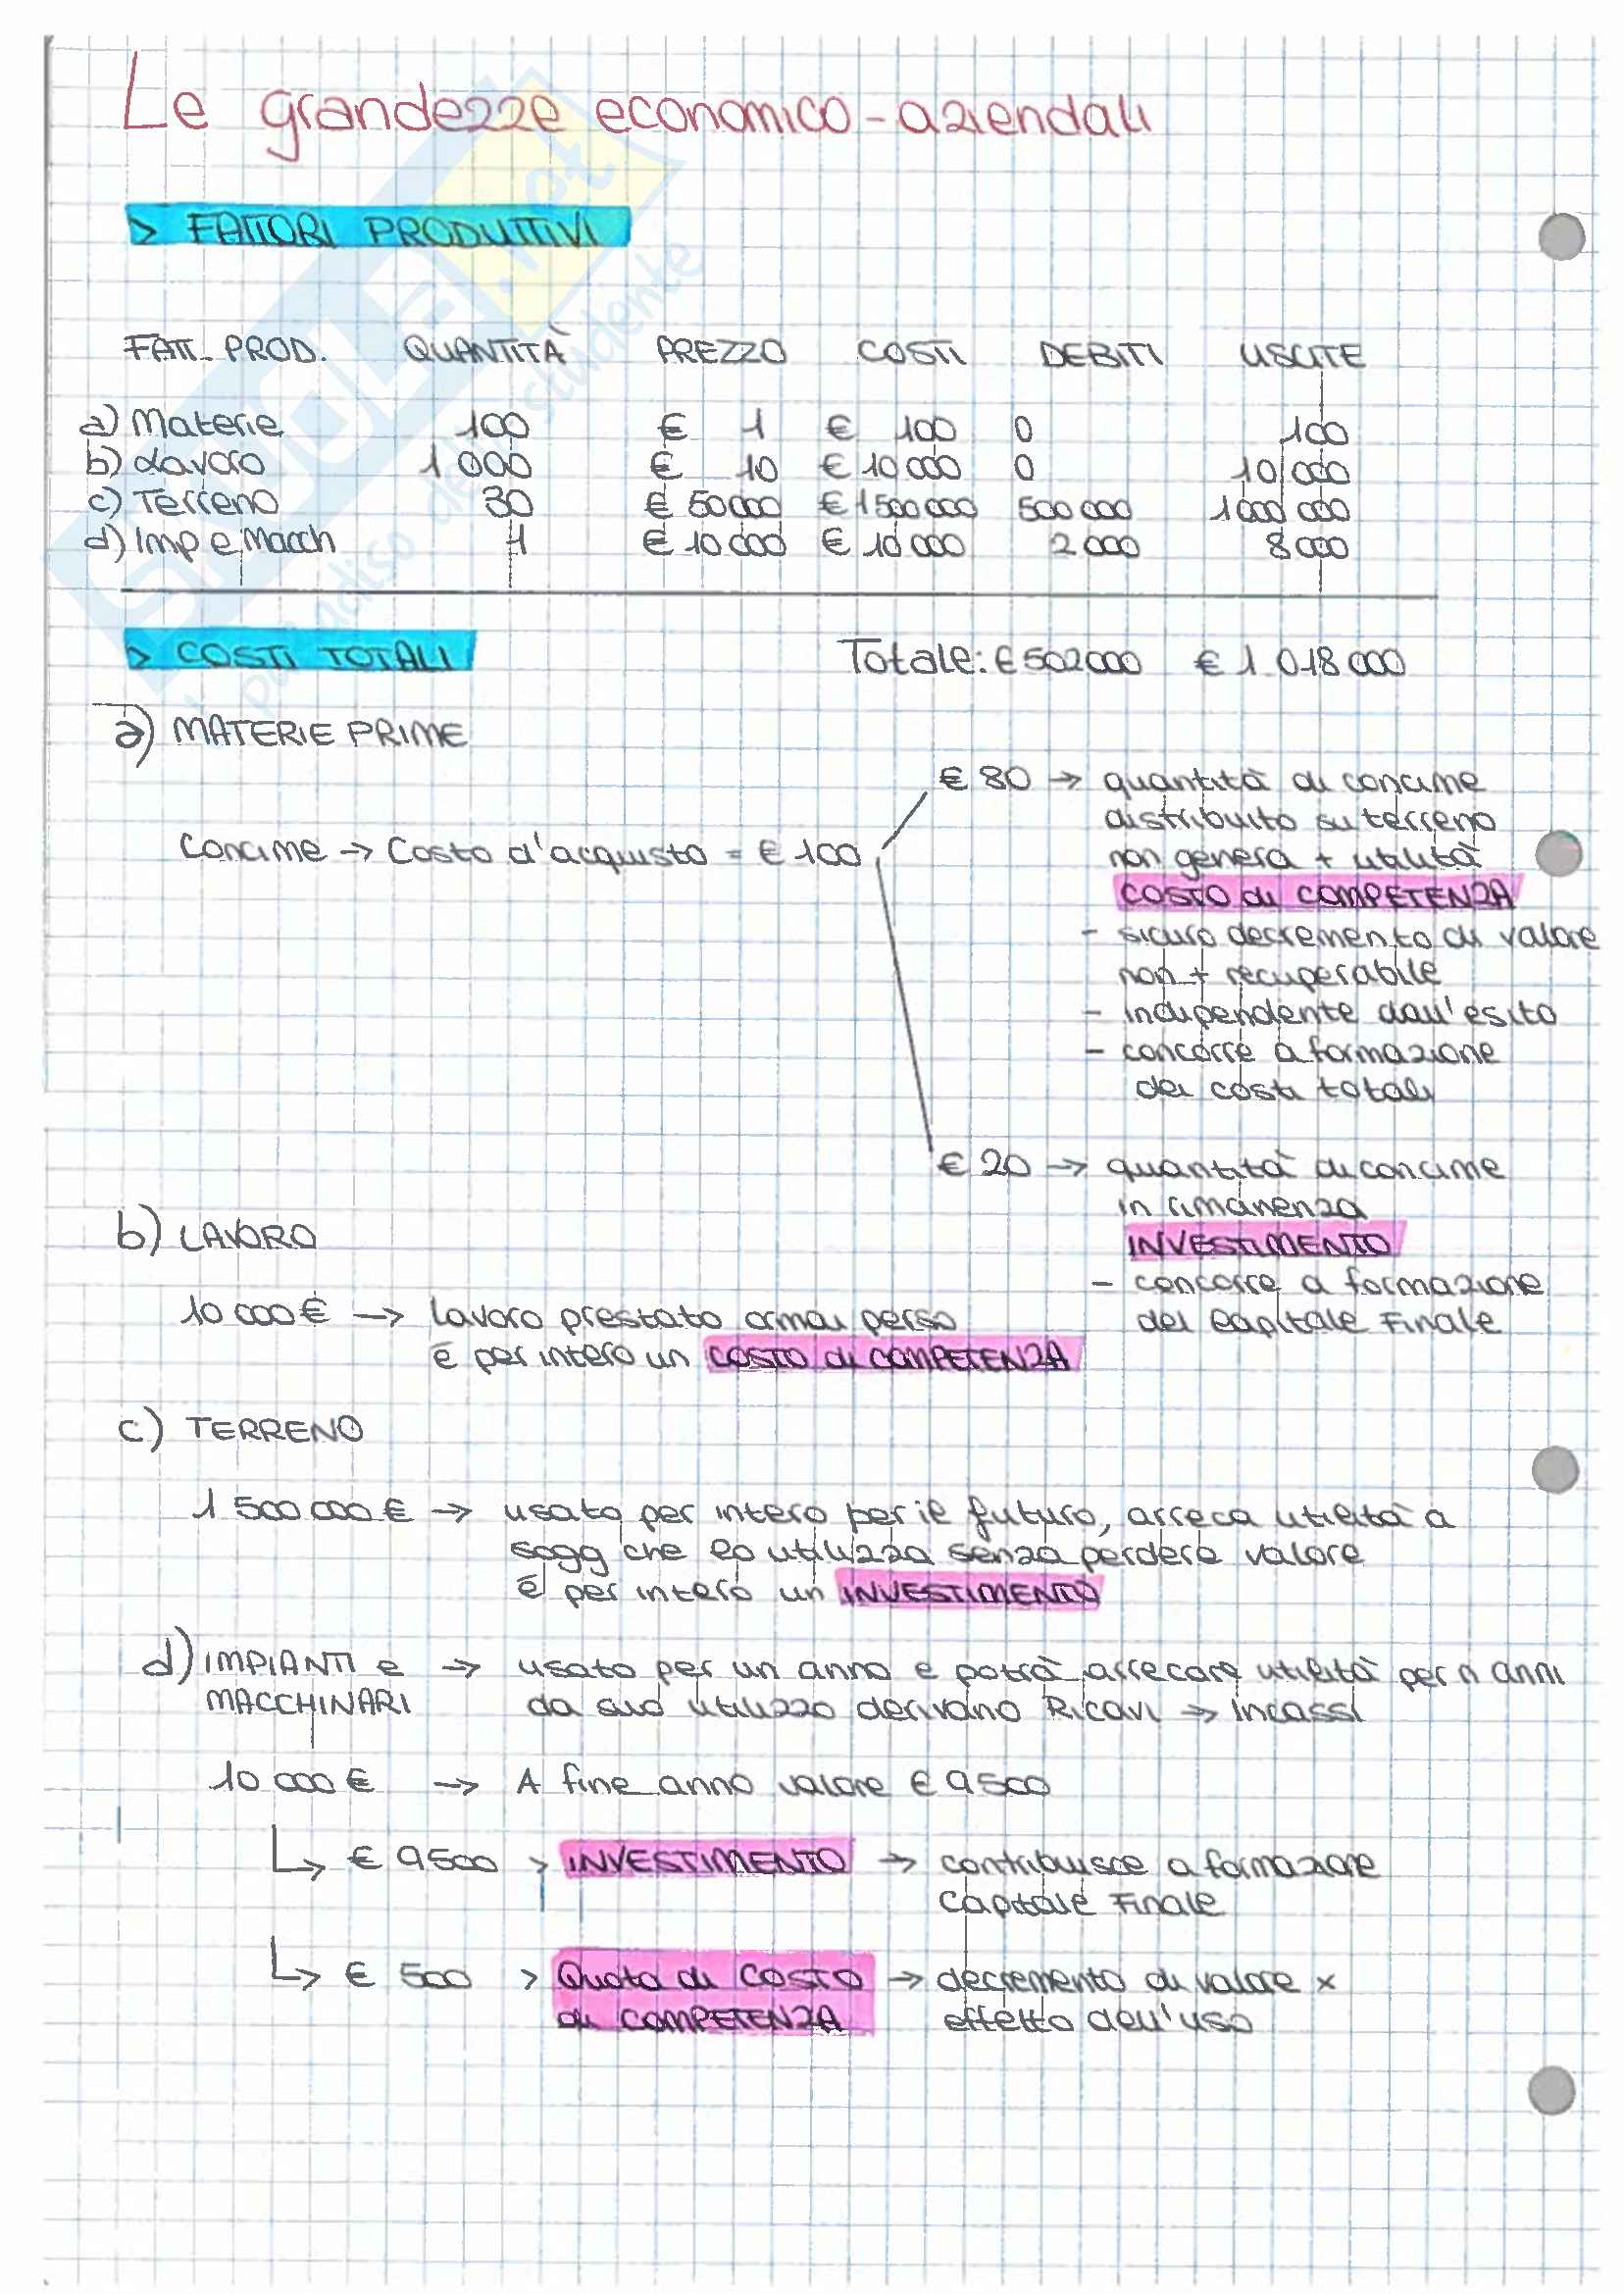 Le grandezze economico-aziendali
> FATTORI PRODUTTIVI
FATT. PROD. QUANTITÀ PREZZO COSTI DEBITI USCITE
a) Materie 100 € 1 € 100 0 100
b) Lavoro 1 000 € 10 € 10 000 0 10 000
c) Terreno 30 € 50 000 € 1 500 000 500 000 1 000 000
d) Imp e Macch 1 € 10 000 € 10 000 2 000 8 000
> COSTI TOTALI Totale: € 502 000 € 1 018 000
a) MATERIE PRIME
€ 80 → quantità di concime
distribuito su terreno
Concime → Costo d'acquisto = € 100 non genera + utilità
COSTO di COMPETENZA
- sicuro decremento di valore
non + recuperabile
- indipendente dall'esito
- concorre a formazione
dei costi totali
€ 20 → quantità di concime
in rimanenza
b) LAVORO INVESTIMENTO
- concorre a formazione
10 000 € → lavoro prestato ormai perso del Capitale Finale
è per intero un COSTO di COMPETENZA
c) TERRENO
1 500 000 € → usato per intero per il futuro, arreca utilità a
sogg che lo utilizza senza perdere valore
è per intero un INVESTIMENTO
d) IMPIANTI e → usato per un anno e potrà arrecare utilità per n anni
MACCHINARI da suo utilizzo derivano Ricavi → Incassi
10 000 € → A fine anno valore € 9500
↳ € 9500 > INVESTIMENTO → contribuisce a formazione
Capitale Finale
↳ € 500 > Quota di COSTO → decremento di valore x
di COMPETENZA effetto dell'uso
SKUOLA.net
il paradiso dello studente